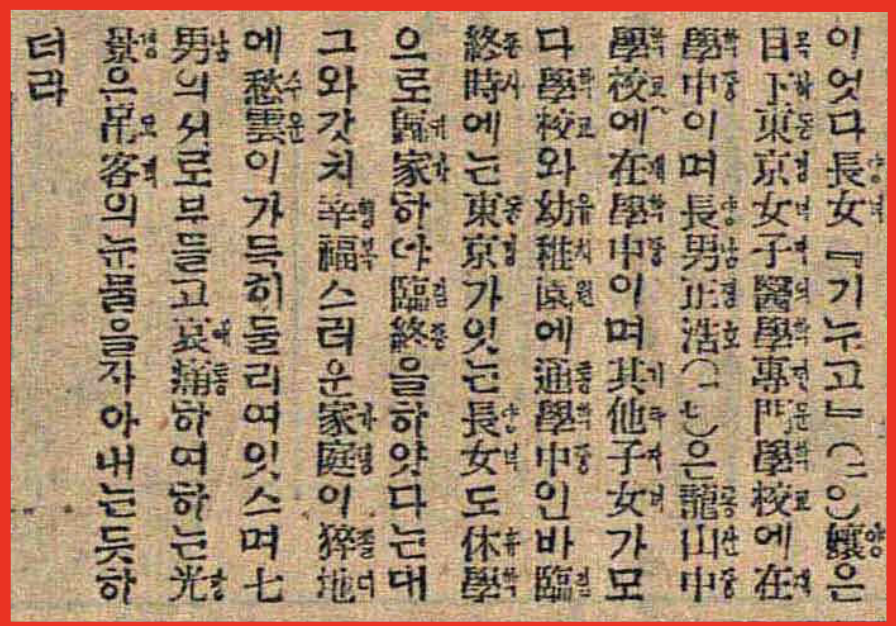 이엇다長女『기누고』(二〇)孃은
目下東京女子醫學專門學校에在
學中이며長男正浩(一七)은龍山中
學校에在學中이며其他子女가모
다學校와幼稚園에通學中인바臨
終時에는東京가잇는長女도休學
으로歸家하야臨終을하얏다는대
그와갓치幸福스러운家庭이猝地
에愁雲이가득히둘리여잇스며七
男의서로부들고哀痛하여하는光
景은吊客의눈물을자아내는듯하
더라